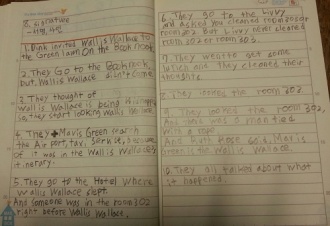 8. signature
1. Dink invited Wallis Wallace to
the Green lawn On the Book Nook.
2. They Go to the Book nook,
but, Wallis Wallace didn't come.
3. They thought of
Wallis Wallace is being
so they start looking Wallis Wallace.
4. They + Mavis Green search
the Air port, taxi, service, because
of it was in the Wallis Wallace's
itinerary.
5. They go to the Hotel where
Wallis Wallace slept.
And someone was in the room 302
right before Wallis Wallace.
6. They go to the Livvy
and asked you cleaned room 303 or
room 302. But Livvy never cleaned
room 302 or room 303.
7. They went to get some
lunch and they cleaned their
thoughts.
8. They the room 302.
9. They opened the room 302,
And there was a man tied
with a rope
And Ruth Rose said, Mavis
Green is the Wallis Wallace.
They all talked about what
happened.